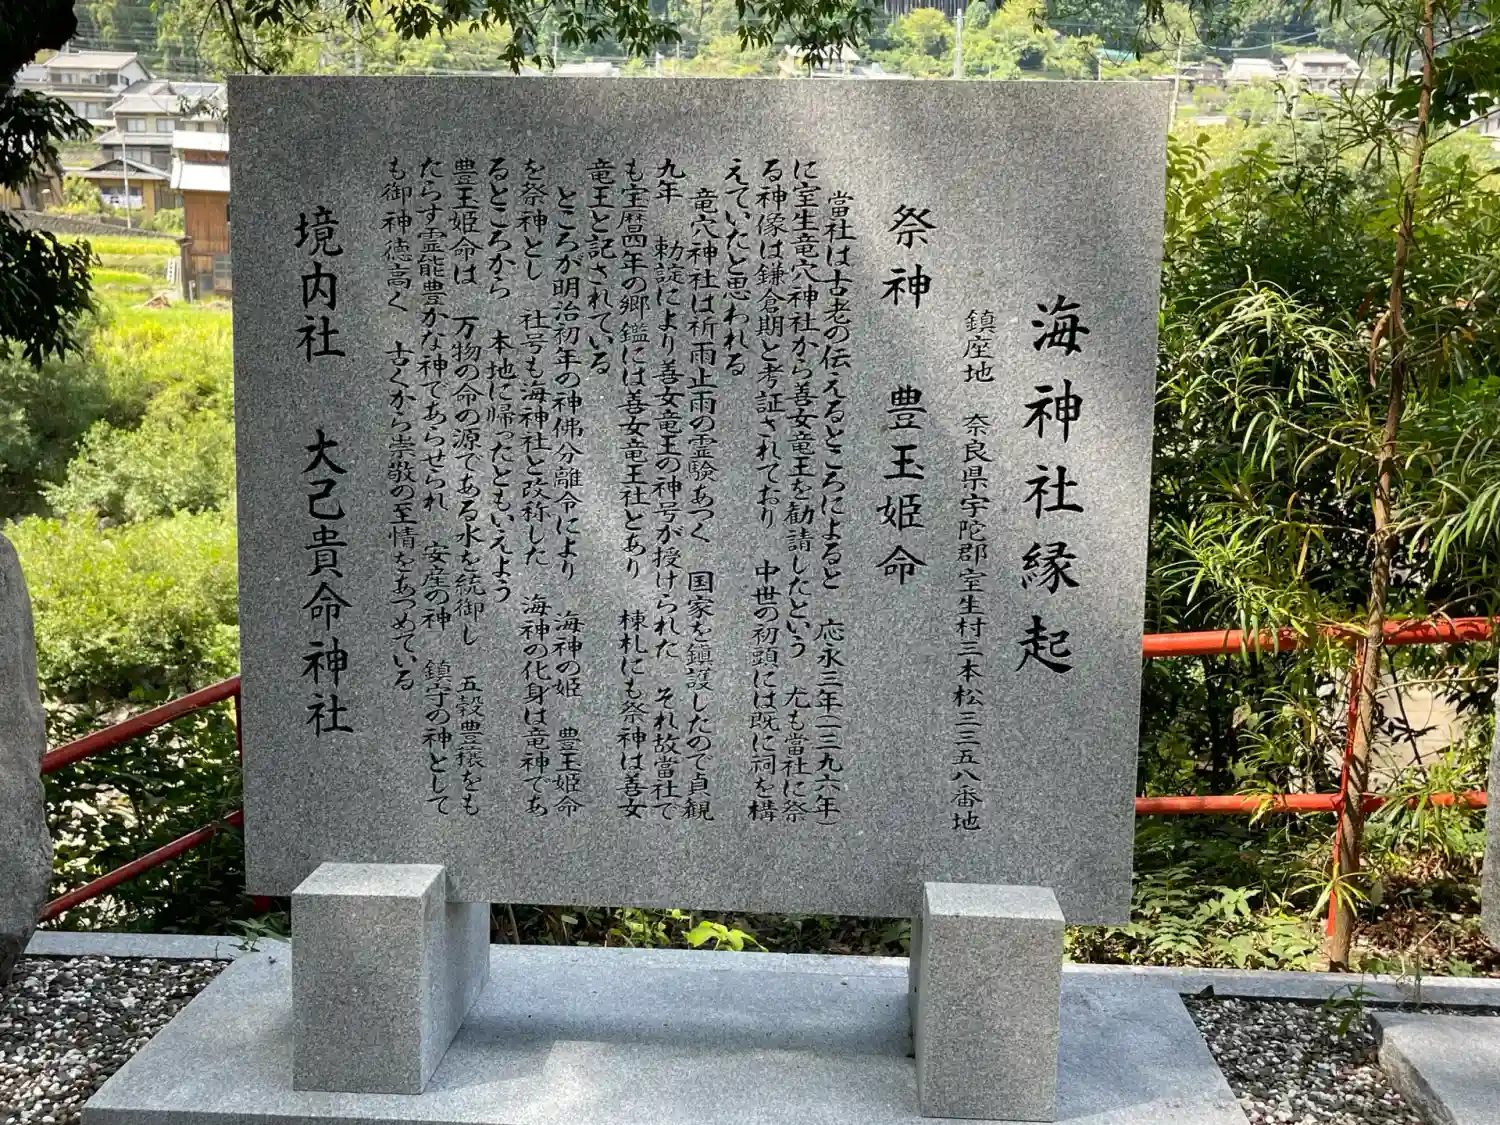 海神社縁起
鎮座地　奈良県宇陀郡室生村三本松三三五八番地
祭神　豊玉姫命
當社は古老の伝えるところによると　応永三年（一三九六年）
に室生竜穴神社から善女竜王を勧請したという　尤も當社に祭
る神像は鎌倉期と考証されており　中世の初頭には既に祠を構
えていたと思われる
竜穴神社は祈雨止雨の霊験あつく　国家を鎮護したので貞観
九年　勅諚により善女竜王の神号が授けられた　それ故當社で
も宝暦四年の郷鑑には善女竜王社とあり　棟札にも祭神は善女
竜王と記されている
ところが明治初年の神佛分離令により　海神の姫　豊玉姫命
を祭神とし　社号も海神社と改称した　海神の化身は竜神であ
るところから　本地に帰ったともいえよう
豊玉姫命は　万物の命の源である水を統御し　五穀豊穣をも
たらす霊能豊かな神であらせられ　安産の神　鎮守の神として
も御神徳高く　古くから崇敬の至情をあつめている
境内社　大己貴命神社